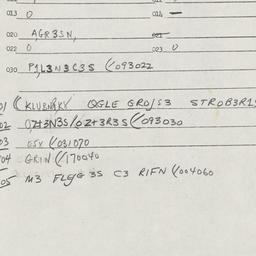 013 0 014 —
020 AGR3SN, 021
022 0 023 0
030 P1L3N3C3S (/093022
01 (KLUBNÄKY QGLE GROJS3 STROB3R1S
02 0Z+3N3S/0Z+3R3S (/093030
03 ESX (/031070
04 GRIN (/170040
05 M3 FLGG 3S C3 RIFN (/004060